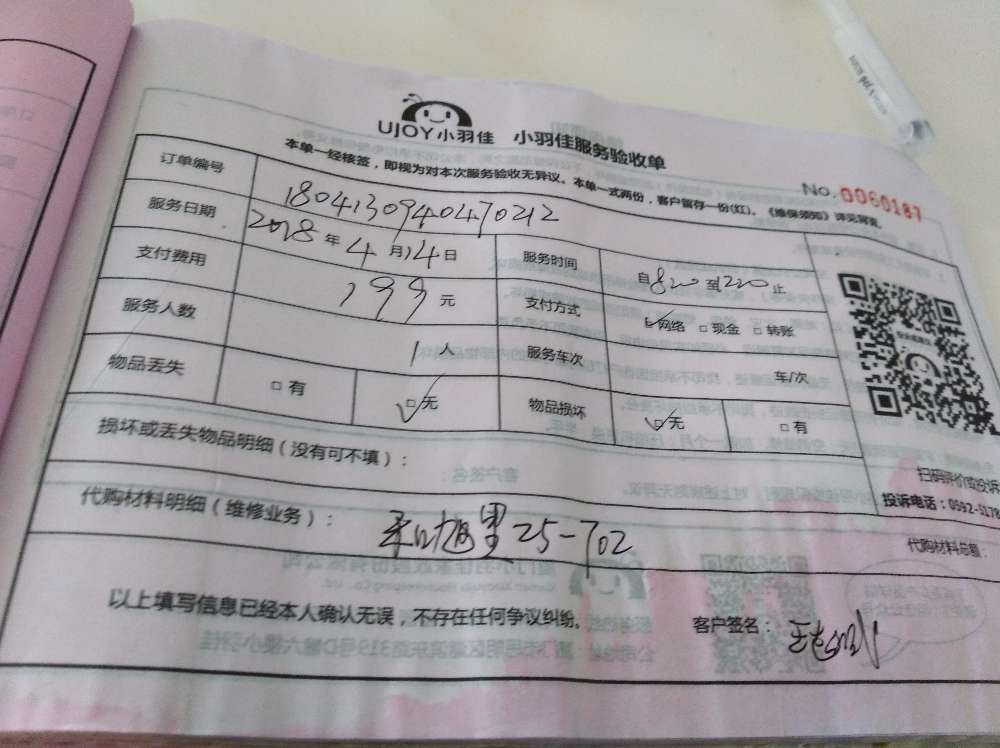 UJOY小羽佳 小羽佳服务验收单
本单一经核签，即视为对本次服务验收无异议。本单一式两份，客户留存一份(红)。《维保须知》详见背面。
No. 0060187
订单编号 18041309404470212
服务日期 2018年4月14日 服务时间 自820至1220止
支付费用 199元 支付方式 网络 现金 转账
服务人数 1人 服务车次 车/次
物品丢失 有 无 物品损坏 无 有
损坏或丢失物品明细（没有可不填）：
扫码评价或投诉
代购材料明细（维修业务）： 25-702
投诉电话：0592-5178
代购材料总额：
以上填写信息已经本人确认无误，不存在任何争议纠纷。 客户签名：